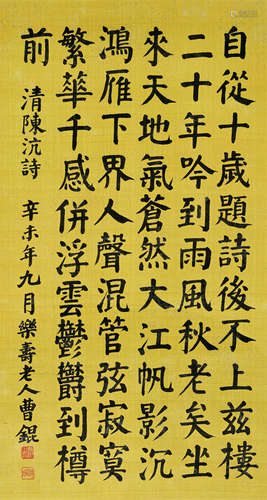 自從十歲題詩後不上茲樓
二十年吟到雨風秋老矣坐
來天地氣蒼然大江帆影沉
鴻雁下界人聲混管弦寂寞
繁華千感併浮雲鬱鬱到樽
前 清陳沆詩 辛未年九月樂壽老人曹錕